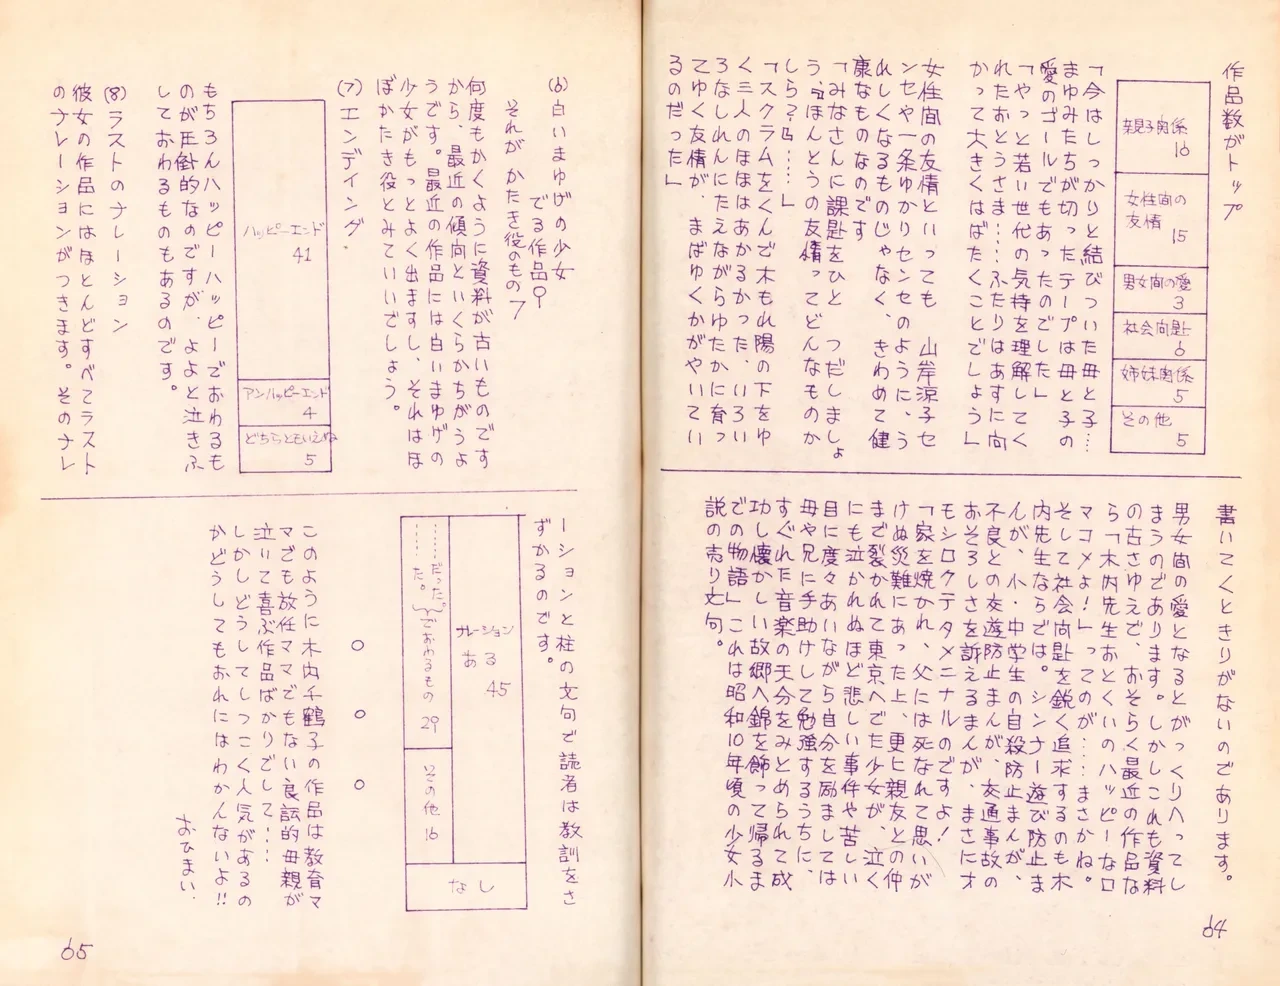 作品数がトップ
親子関係
16
女性間の
友情
15
男女間の愛
3
社会問題
6
姉妹関係
5
その他
5
「今はしっかりと結びついた母と子…
まゆみたちが切ったテープは母と子の
愛のゴールでもあったのでした」
「やっと若い世代の気持を理解してく
れたおとうさま……ふたりはあすに向
かって大きくはばたくことでしょう」
女性間の友情といっても 山岸涼子セ
ンセや一条ゆかりセンセのように、う
れしくなるものじゃなく、きわめて健
康なものなのです
「みなさんに課題をひと つだしましょ
う、『ほんとうの友情ってどんなものか
しら?』……」
「スクラムをくんで木もれ陽の下をゆ
く三人のほほはあかるかった、いろい
ろなしれんにたえながらゆたかに育っ
てゆく友情が、まばゆくかがやいてい
るのだった」
書いてくときりがないのであります。
男女間の愛となるとがっくりへってし
まうのであります。しかしこれも資料
の古さゆえで、おそらく最近の作品な
ら「木内先生おとくいのハッピーなロ
マコメよ!」ってのが……まさかね。
そして社会問題を鋭く追求するのも木
内先生ならでは。シンナー遊び防止ま
んが、小・中学生の自殺防止まんが、
不良との交遊防止まんが、交通事故の
おそろしさを訴えるまんが、まさにオ
モシロクテタメニナルのですよ!
「家を焼かれ、父には死なれて思いが
けぬ災難にあった上、更に親友との仲
まで裂かれて東京へでた少女が、泣く
にも泣かれぬほど悲しい事件や苦しい
目に度々あいながら自分を励ましては
母や兄に手助けして勉強するうちに、
すぐれた音楽の天分をみとめられて成
功し懐かしい故郷へ錦を飾って帰るま
での物語」これは昭和10年頃の少女小
説の売り文句。
64
(6)白いまゆげの少女
でる作品 9
それが かたき役のもの 7
何度もかくように資料が古いものです
から、最近の傾向といくらかちがうよ
うです。最近の作品には白いまゆげの
少女がもっとよく出ますし、それはほ
ぼかたき役とみていいでしょう。
(7)エンディング
ハッピーエンド
41
アンハッピーエンド
4
どちらともいえぬ
5
もちろんハッピーハッピーでおわるも
のが圧倒的なのですが、よよと泣きふ
しておわるものもあるのです。
(8)ラストのナレーション
彼女の作品にはほとんどすべてラスト
のナレーションがつきます。そのナレ
ーションと柱の文句で読者は教訓をさ
ずかるのです。
ナレーション
ある
45
……だった。
……た。
でおわるもの 29
その他 16
なし
○ ○ ○
このように木内千鶴子の作品は教育マ
マでも放任ママでもない良識的母親が
泣いて喜ぶ作品ばかりでして……
しかしどうしてしつこく人気があるの
かどうしてもおれにはわかんないよ!!
おひまい.
65